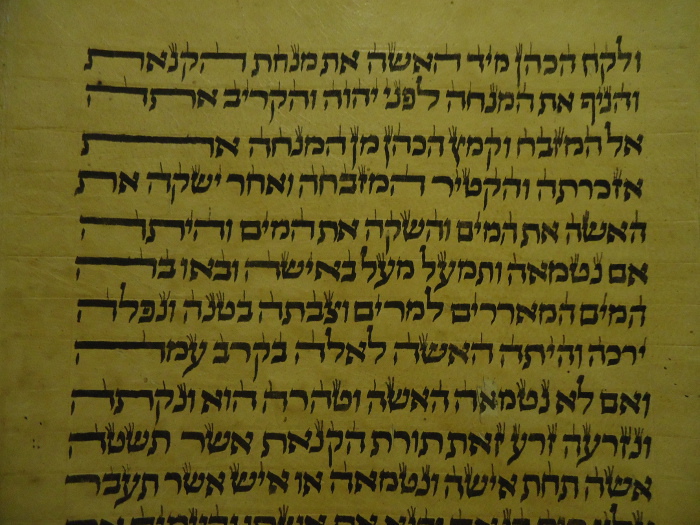 ולקח הכהן מיד האשה את מנחת הקנאת
והניף את המנחה לפני יהוה והקריב אתה
אל המזבח וקמץ הכהן מן המנחה את
אזכרתה והקטיר המזבחה ואחר ישקה את
האשה את המים והשקה את המים והיתה
אם נטמאה ותמעל מעל באישה ובאו בה
המים המאררים למרים וצבתה בטנה ונפלה
ירכה והיתה האשה לאלה בקרב עמה
ואם לא נטמאה האשה וטהרה הוא ונקתה
ונזרעה זרע זאת תורת הקנאת אשר תשטה
אשה תחת אישה ונטמאה או איש אשר תעבר